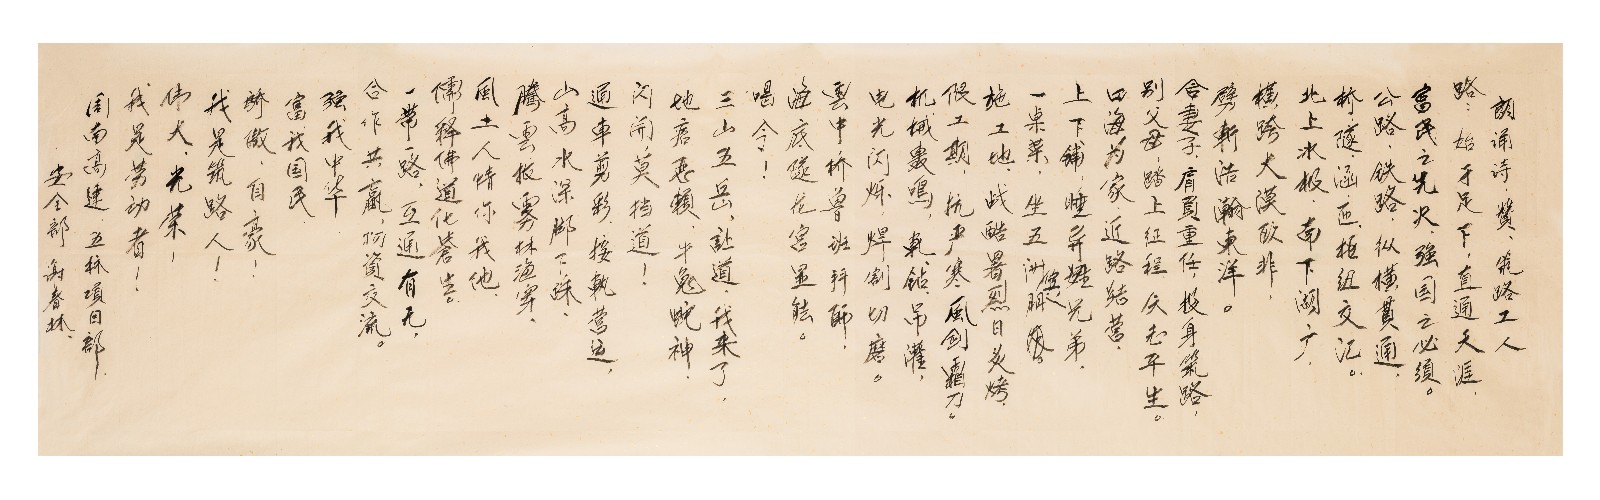 朗诵诗 赞、筑路工人
路：始于足下，直通天涯，
富民之先决，强国之必须。
公路、铁路、纵横贯通，
桥、隧、涵、匝、枢纽交汇。
北上冰极，南下湖广，
横跨大漠欧非，
劈斩浩瀚东洋。
舍妻子，肩负重任，投身筑路，
别父母，踏上征程，矢志平生。
四海为家，近路结营，
上下铺，睡异姓兄弟，
一桌菜，坐五洲朋友。
施工地，战酷暑烈日炎烤，
假工期，抗严寒风剑霜刀。
机械轰鸣，轧、钻、吊、灌，
电光闪烁，焊割切磨。
云中桥尊班拜师，
海底隧龙宫显能。
唱令！
三山五岳，让道，我来了，
地痞恶赖，牛鬼蛇神，
闪开，莫挡道！
通车剪彩，接轨营运，
山高水深脚下踩，
腾云拔雾林海穿，
风土人情你我他，
儒释佛道化蓉誉。
一带一路，互通有无，
合作共赢，何资交流。
强我中华
富我国民
骄傲，自豪！
我是筑路人！
伟大、光荣！
我是劳动者！
周南高速 五标项目部
安全部 谢春林